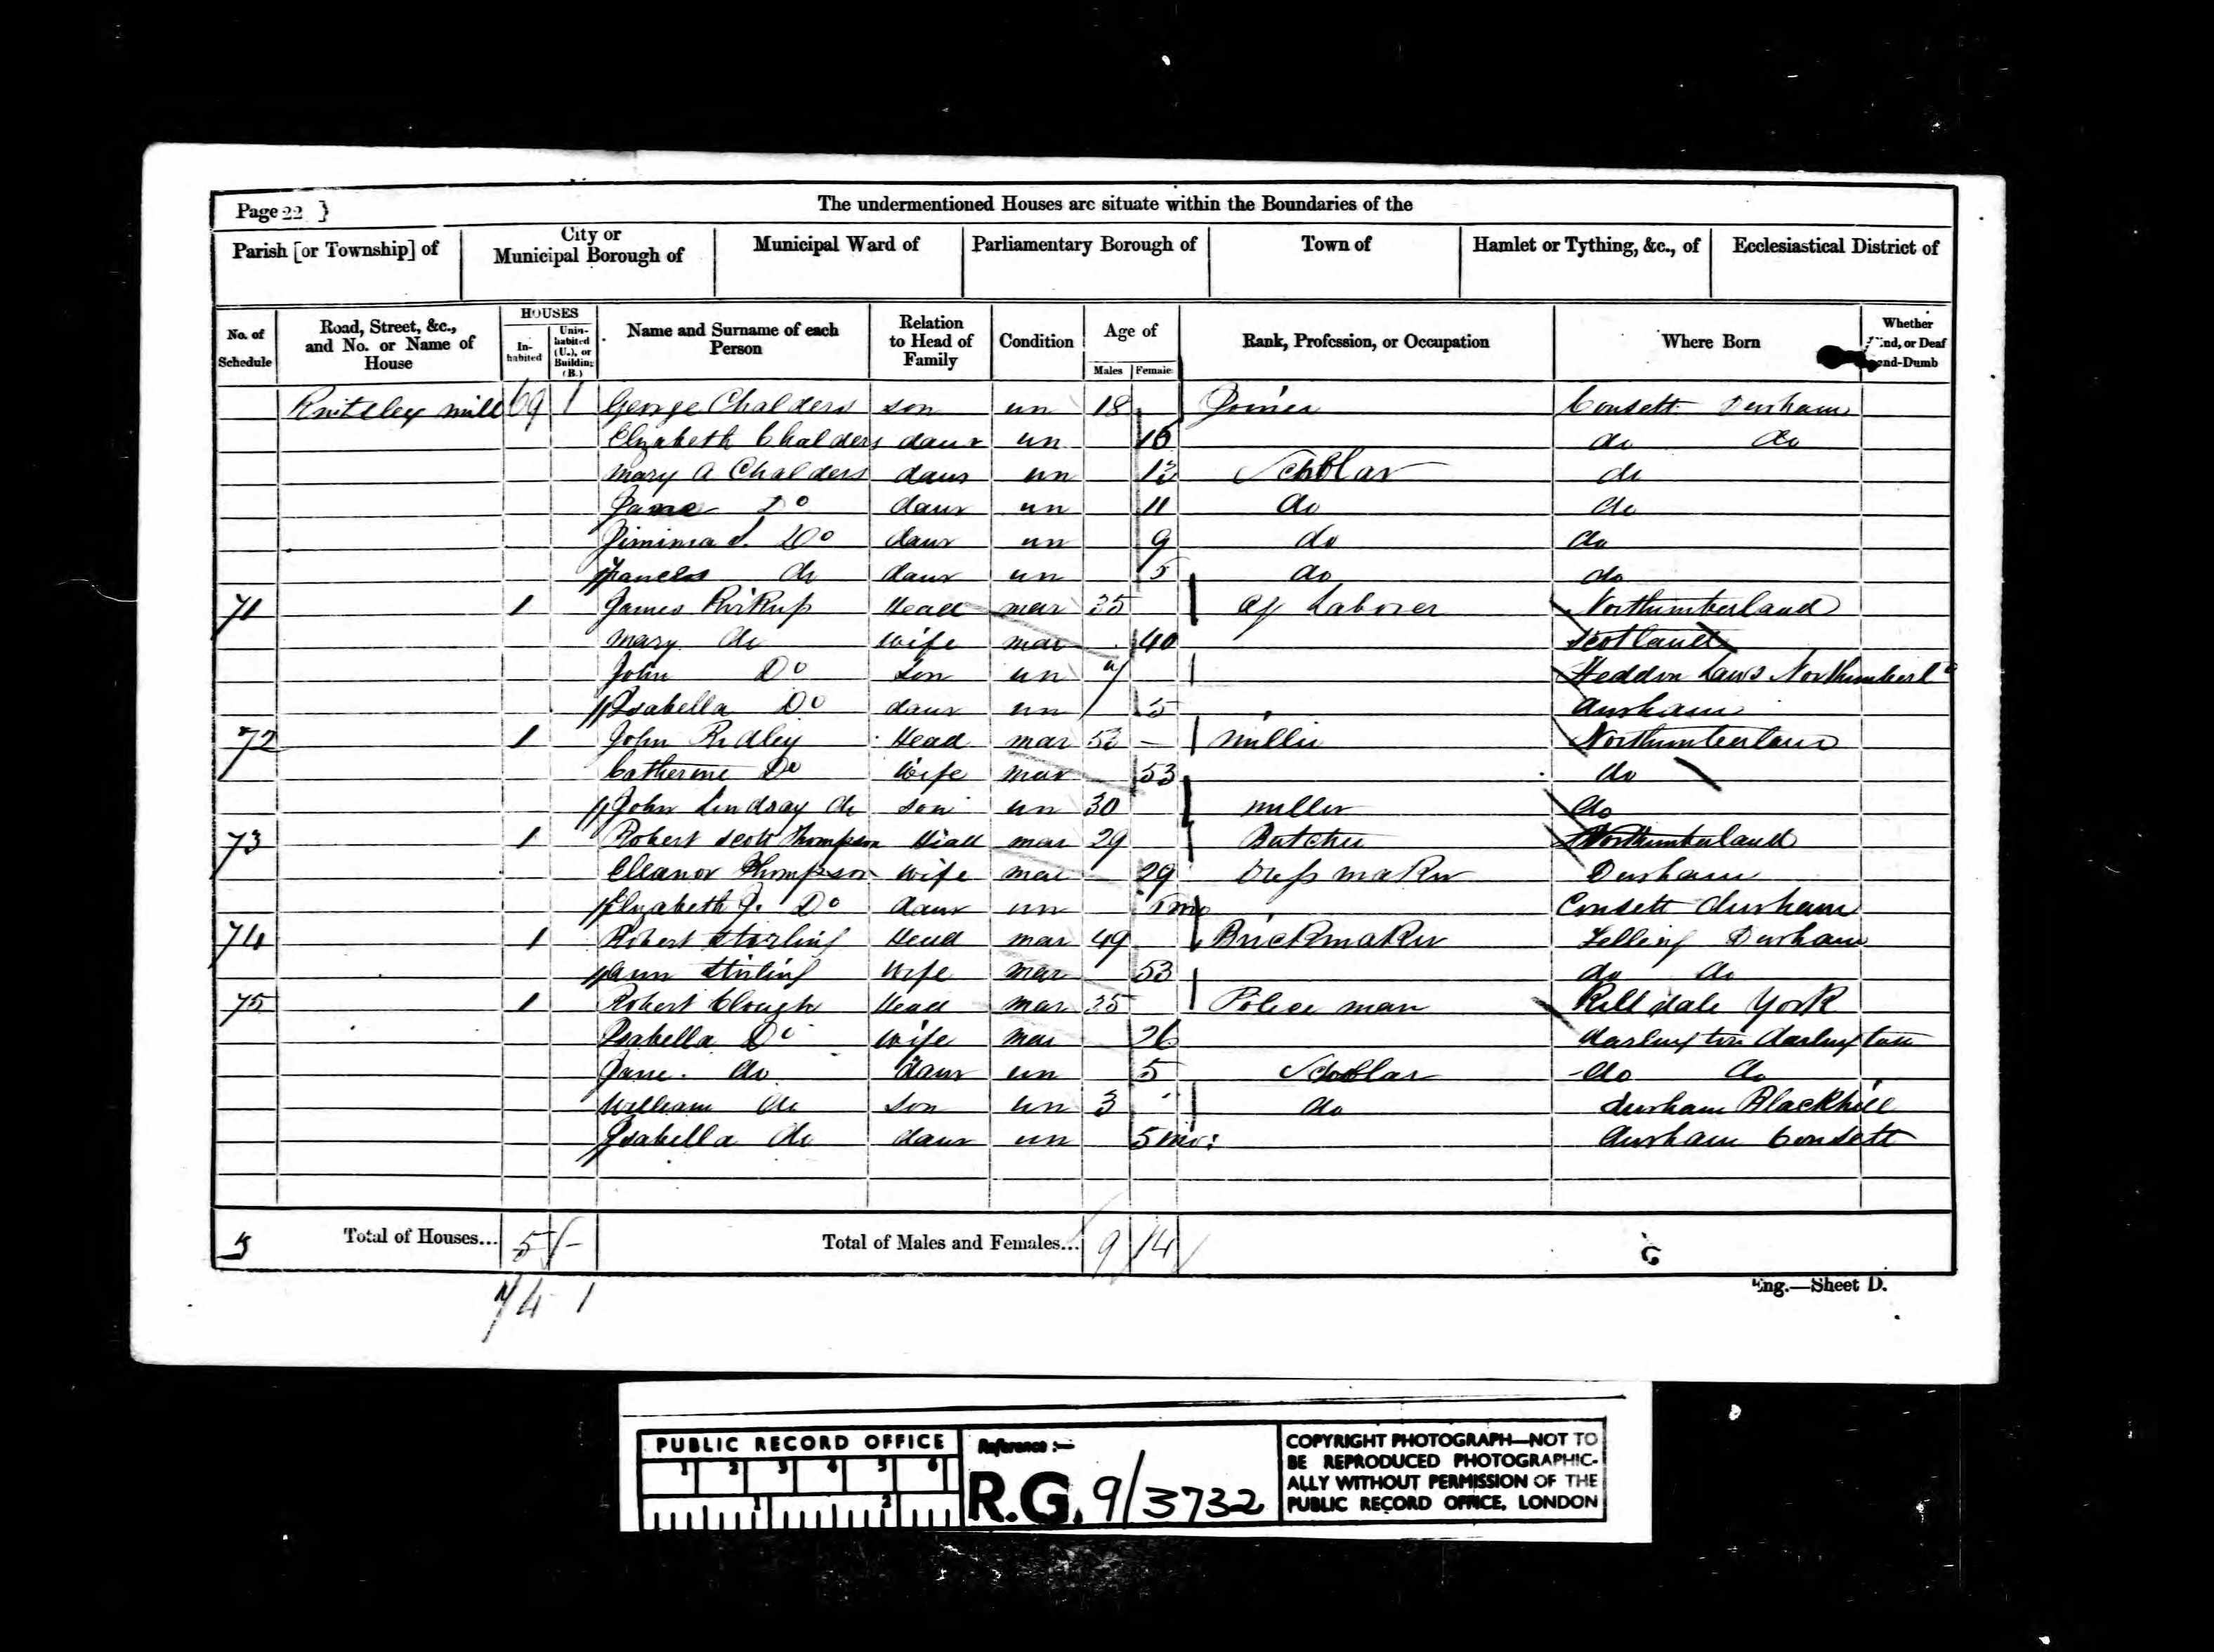 Page 22 }
The undermentioned Houses are situate within the Boundaries of the
Parish [or Township] of
City or Municipal Borough of
Municipal Ward of
Parliamentary Borough of
Town of
Hamlet or Tything, &c., of
Ecclesiastical District of
No. of Schedule
Road, Street, &c., and No. or Name of House
HOUSES
In-habited
Unin-habited (U.), or Building (B.)
Name and Surname of each Person
Relation to Head of Family
Condition
Age of
Males
Females
Rank, Profession, or Occupation
Where Born
Whether Blind, or Deaf and-Dumb
Knitsley mill 69 1 George Chalders son un 18 Joiner Consett Durham
Elizabeth Chalders daur un 16 do do
Mary A Chalders daur un 13 Scholar do
Jane Do daur un 11 do do
Jimima Do daur un 9 do do
Frances do daur un 5 do do
71 1 James Kirkup Head mar 35 Ag Laborer Northumberland
Mary do wife mar 40 Scotland
John Do son un Heddon Laws Northumberld
Isabella Do daur un 5 durham
72 1 John Ridley Head mar 53 miller Northumberland
Catherine Do wife mar 53 do
John Lindsay do son un 30 miller do
73 1 Robert Scott Thompson Head mar 29 Butcher Northumberland
Eleanor Thompson wife mar 29 Dress maker Durham
Elizabeth J. Do daur un mo Consett durham
74 1 Robert Starling Head mar 49 Brickmaker Felling Durham
Ann Stirling wife mar 53 do do
75 1 Robert Clough Head mar 35 Police man Kildale York
Isabella Do wife mar 26 darlington darlington
Jane do daur un 5 Scholar do do
William do son un 3 do durham Blackhill
Isabella do daur un 5 mo: durham Consett
5 Total of Houses... 5 -
Total of Males and Females... 9 14
74 1
Eng.—Sheet D.
PUBLIC RECORD OFFICE
1 2 3 4 5 6
1 2
Reference :-
R.G. 9/3732
COPYRIGHT PHOTOGRAPH—NOT TO
BE REPRODUCED PHOTOGRAPHIC-
ALLY WITHOUT PERMISSION OF THE
PUBLIC RECORD OFFICE, LONDON